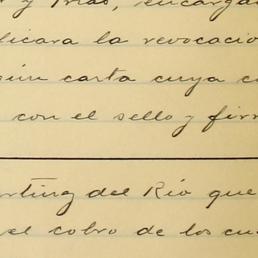 y Frias, encargad
licara la revocacio
gún carta cuya c
con el sello y fir
orting del Rio que
el cobro de los cu